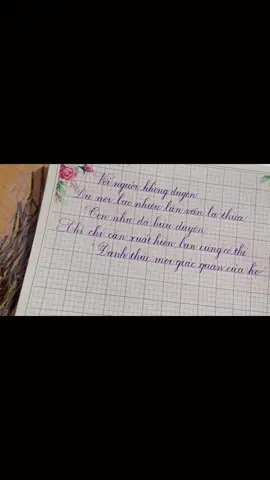 Với người không duyên
Dù nói bao nhiêu lần vẫn là thừa
Còn như đã hữu duyên
Thì chỉ cần xuất hiện lần cũng có thể
Đánh thức mọi giác quan của họ